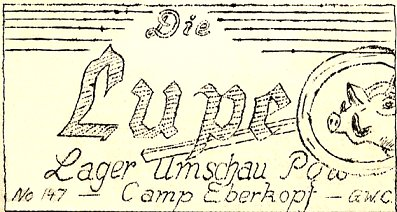 Die
Lupe
Lager Umschau PGW
No 147 — Camp Eberkopf — G.W.C.